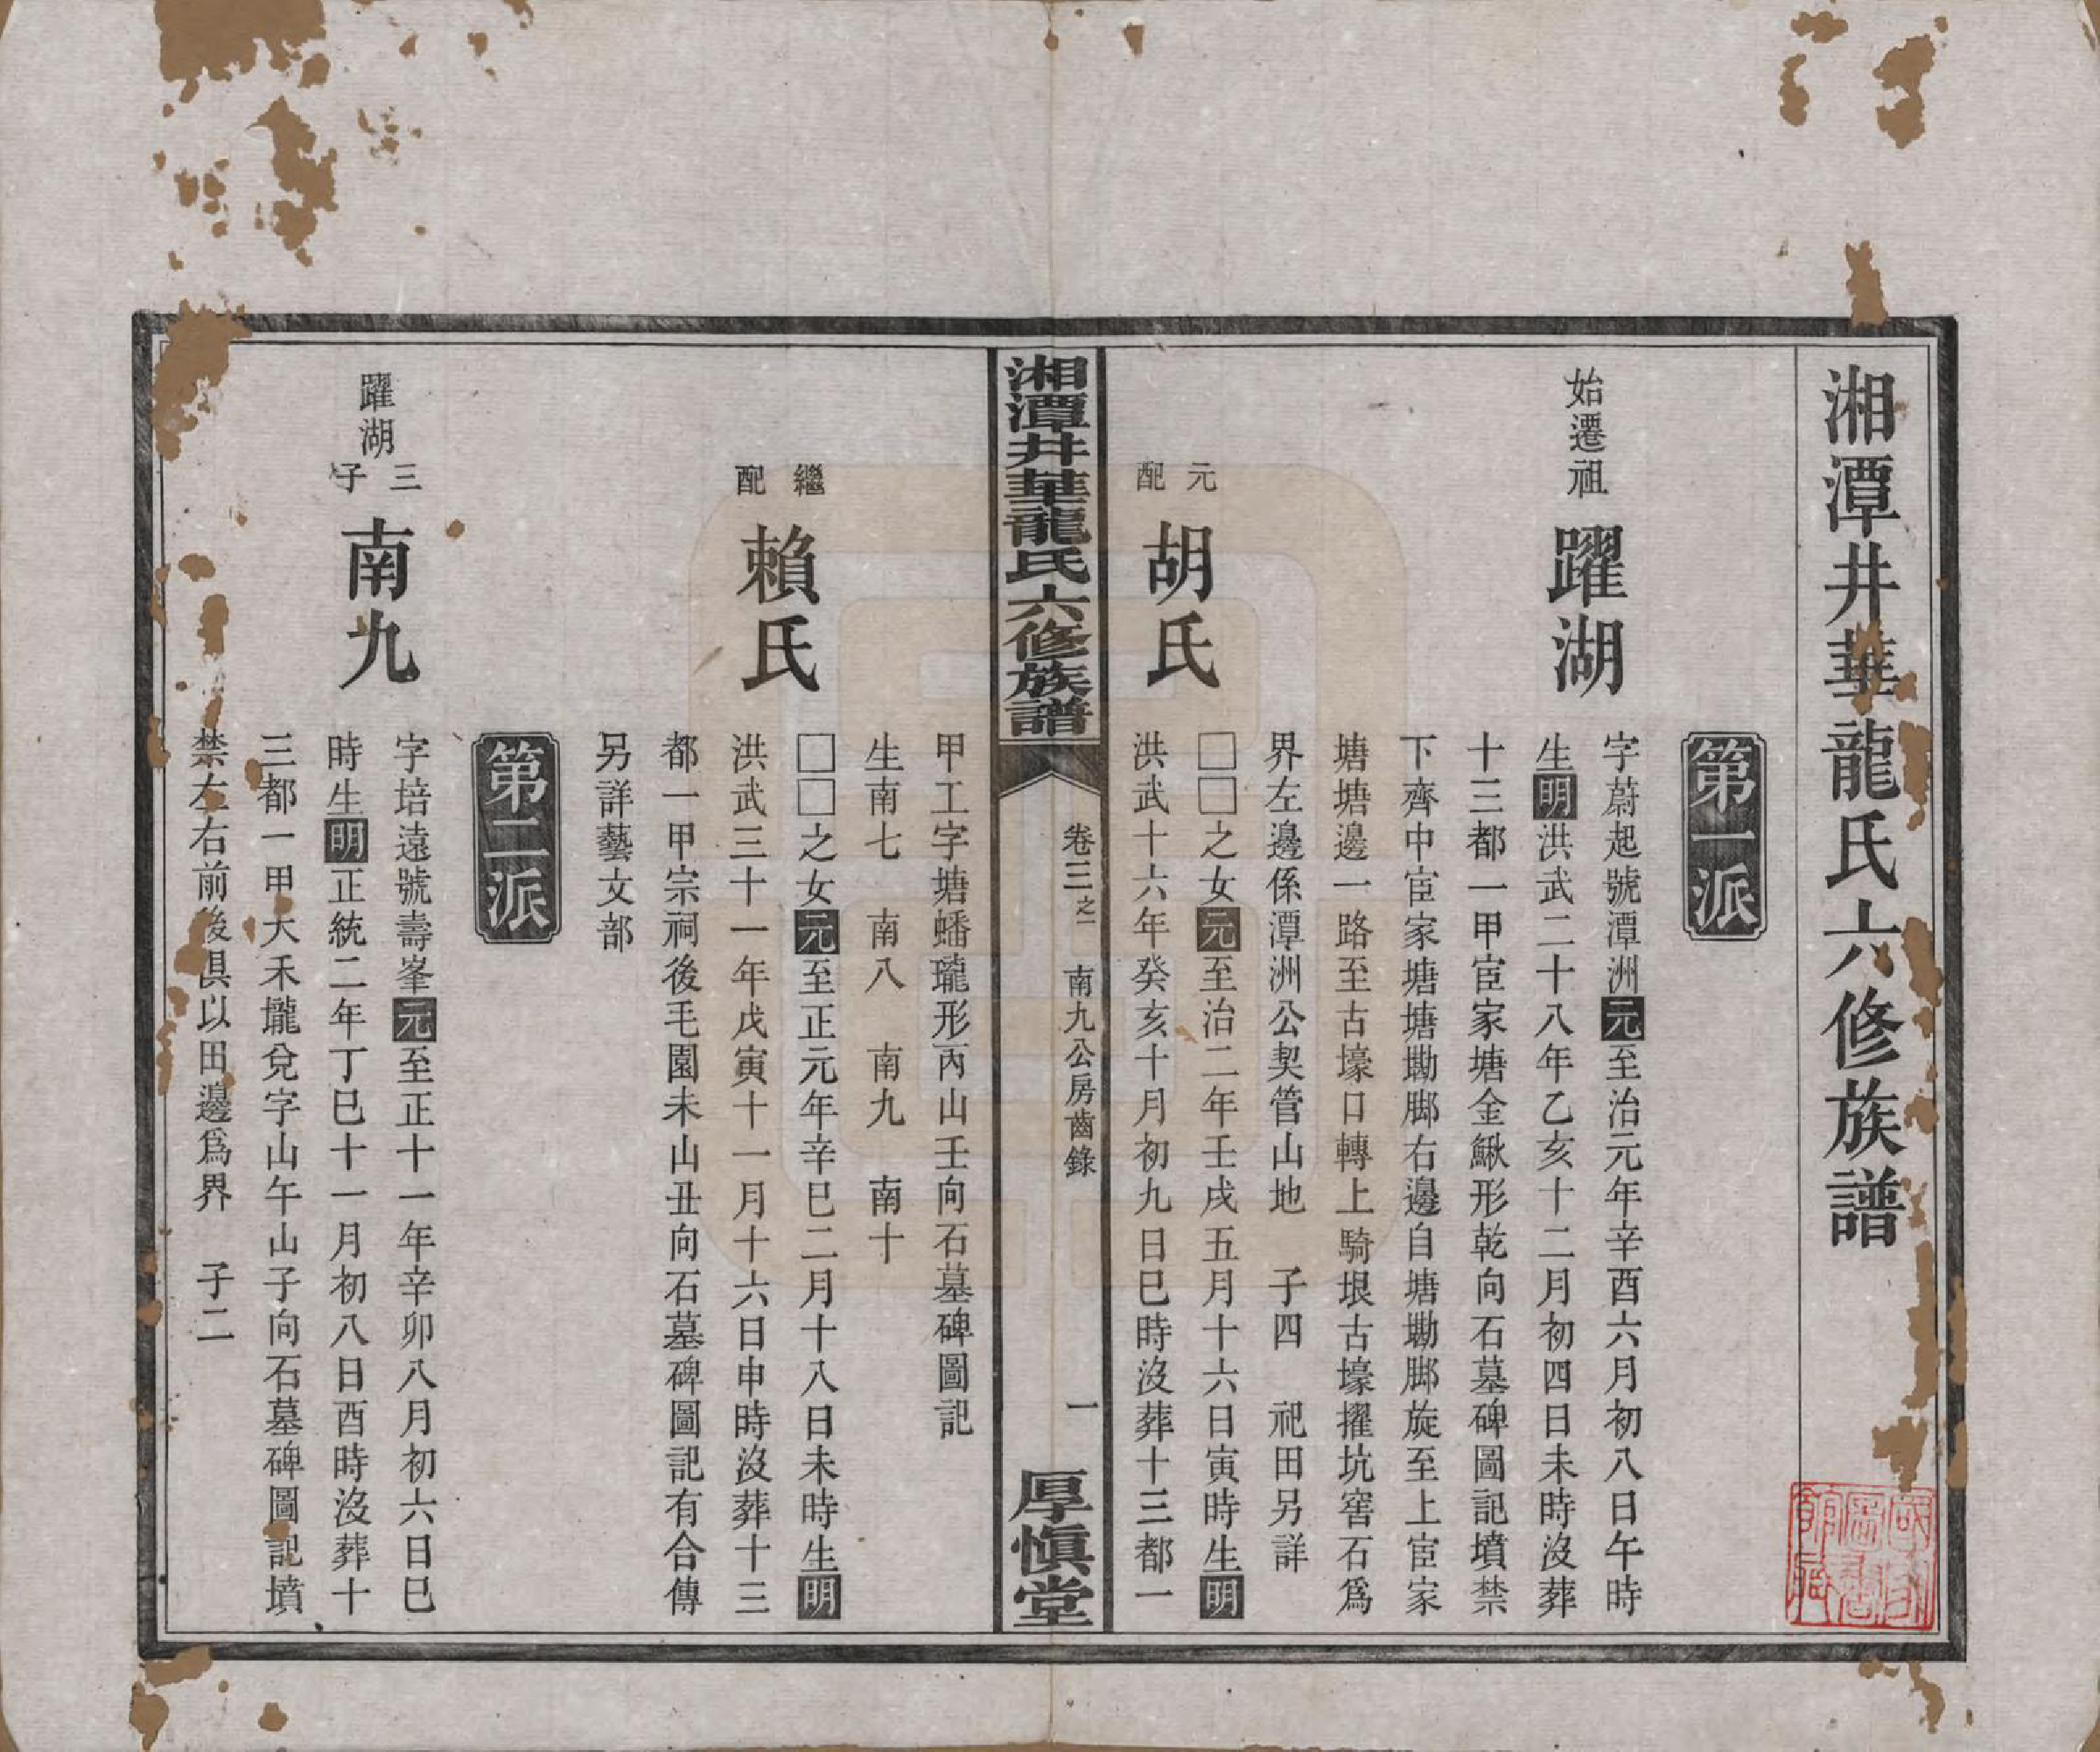 湘潭井華龍氏六修族譜
第一派
始遷祖
躍湖
字蔚起號潭洲元至治元年辛酉六月初八日午時
生明洪武二十八年乙亥十二月初四日未時沒葬
十三都一甲宦家塘金鰍形乾向石墓碑圖記墳禁
下齊中宦家塘塘勘脚右邊自塘勘脚旋至上宦家
塘塘邊一路至古壕口轉上騎垠古壕擢坑窖石爲
界左邊係潭洲公契管山地 子四 祀田另詳
元配
胡氏
□□之女元至治二年壬戌五月十六日寅時生明
洪武十六年癸亥十月初九日巳時沒葬十三都一
湘潭井華龍氏六修族譜
卷三之一 南九公房齒錄
一
厚愼堂
甲工字塘蟠瓏形丙山壬向石墓碑圖記
生南七 南八 南九 南十
繼配
賴氏
□□之女元至正元年辛巳二月十八日未時生明
洪武三十一年戊寅十一月十六日申時沒葬十三
都一甲宗祠後毛園未山丑向石墓碑圖記有合傳
另詳藝文部
第二派
躍湖三子
南九
字培遠號壽峯元至正十一年辛卯八月初六日巳
時生明正統二年丁巳十一月初八日酉時沒葬十
三都一甲大禾壠兌字山午山子向石墓碑圖記墳
禁左右前後俱以田邊爲界 子二